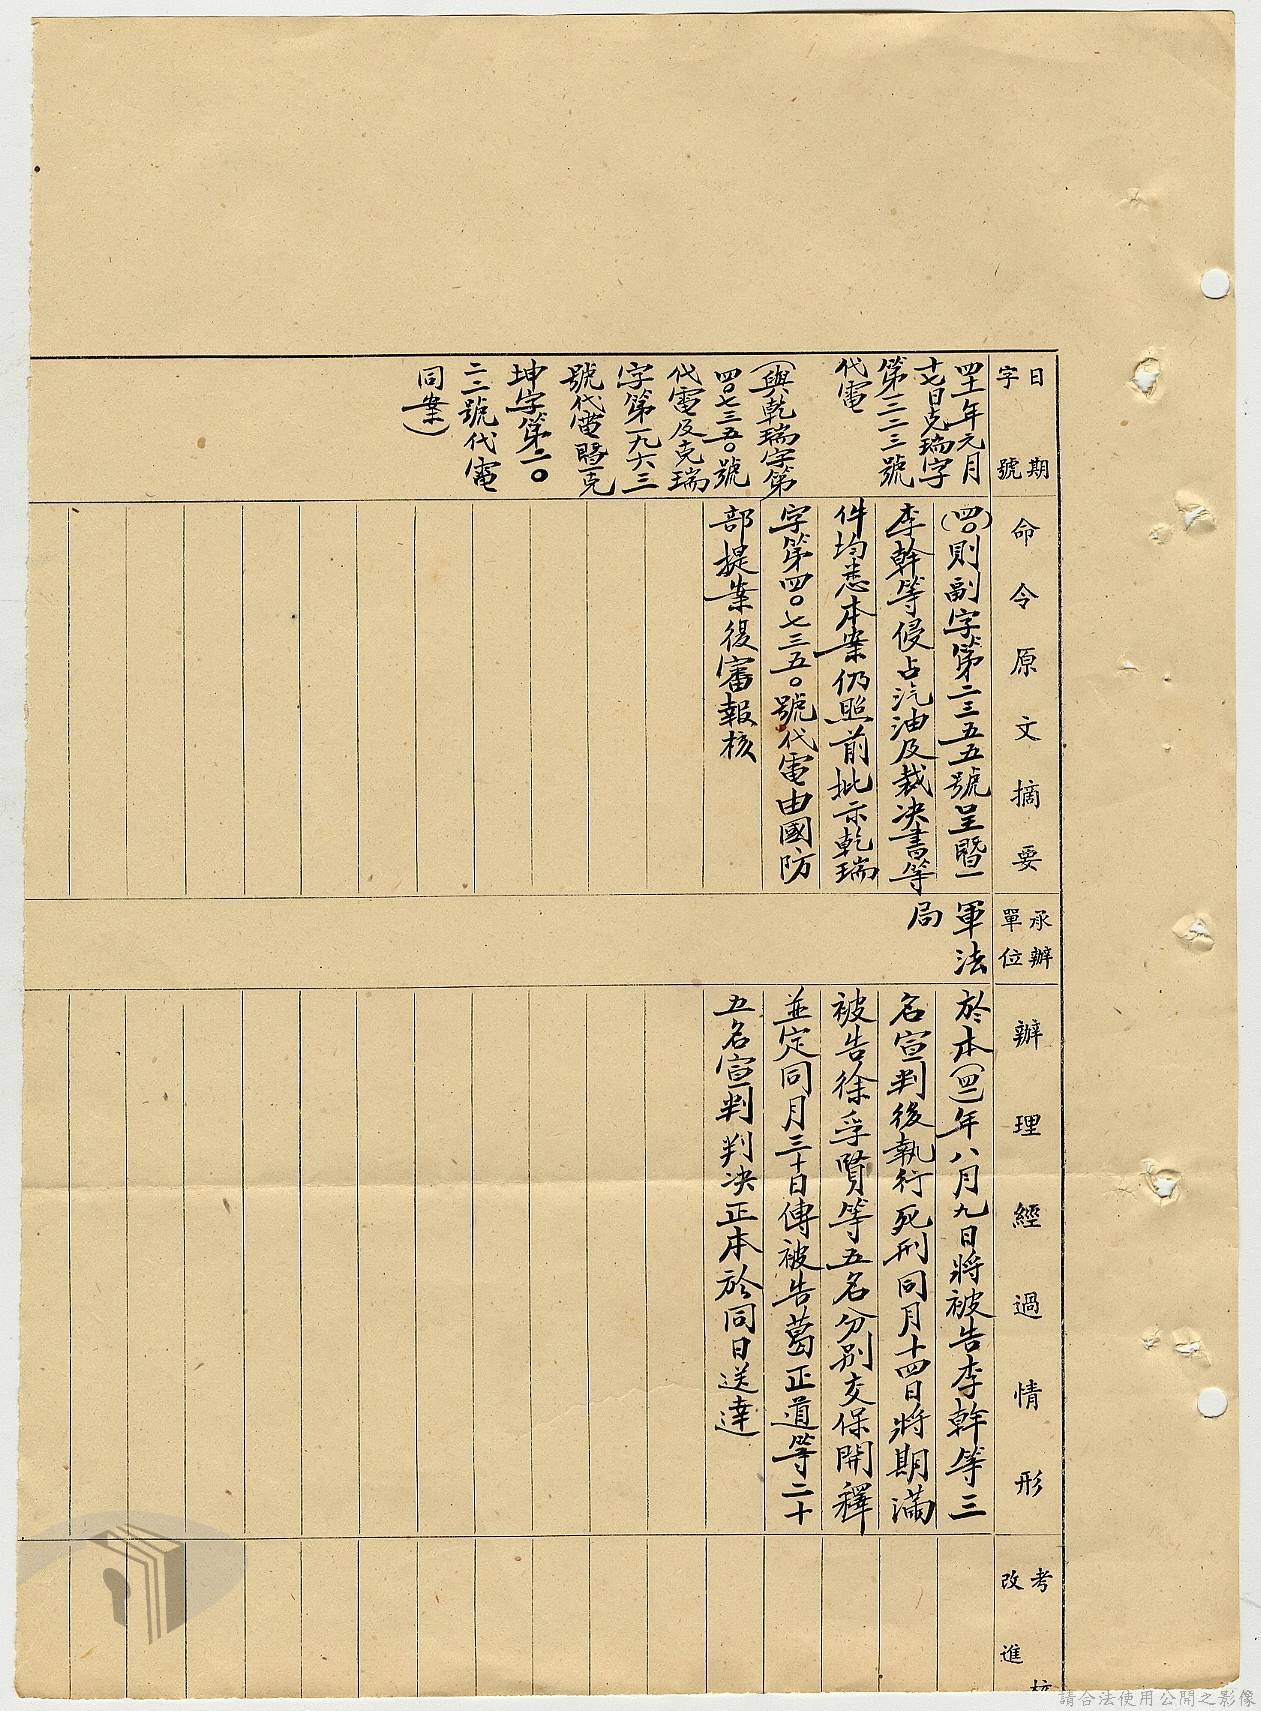 日期
字號
命令原文摘要
承辦
單位
辦理經過情形
考核
改進
四十一年元月
十七日克瑞字
第一三三號
代電
(與乾瑞字第
四〇七三五〇號
代電及克瑞
字第一九六三
號代電暨克
坤字第二〇
二二號代電
同案)
(四〇)則副字第二三五五號呈暨
李幹等侵占汽油及裁決書等
件均悉本案仍照前批示乾瑞
字第四〇七三五〇號代電由國防
部提案復審報核
軍法
局
於本(四一)年八月九日將被告李幹等三
名宣判後執行死刑同月十四日將期滿
被告徐孚賢等五名分別交保開釋
並定同月三十日傳被告葛正道等二十
五名宣判判決正本於同日送達
請合法使用公開之影像